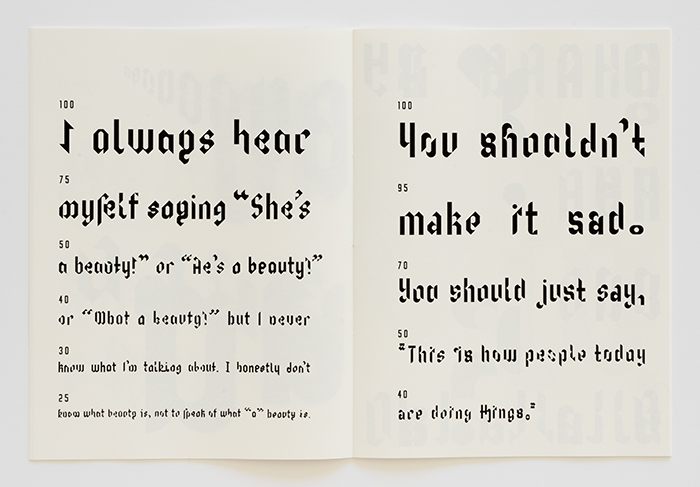 100
I always hear
75
myself saying “She’s
50
a beauty!” or “He’s a beauty!”
40
or “What a beauty!” but I never
30
know what I’m talking about. I honestly don’t
25
know what beauty is, not to speak of what “a” beauty is.
100
You shouldn’t
95
make it sad.
70
You should just say,
50
“This is how people today
40
are doing things.”